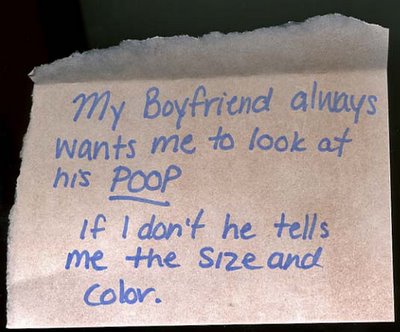 My Boyfriend always
wants me to look at
his POOP
If I don't he tells
me the size and
color.